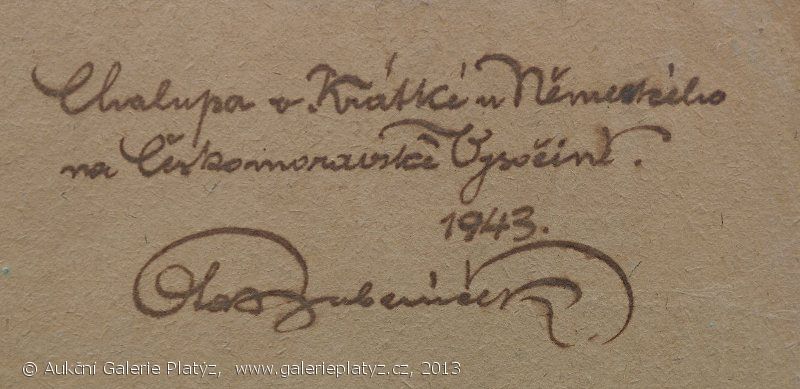 Chalupa v Krátké u Německého
na Českomoravské Vysočině.
1943.
Ota Bubeníček
© Aukční Galerie Platýz, www.galerieplatyz.cz, 2013